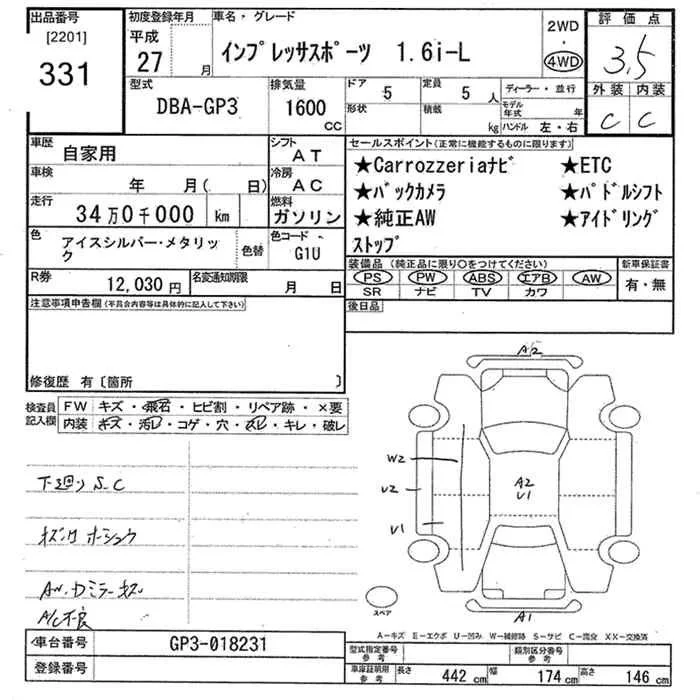 出品番号
[2201]
331
初度登録年月
平成
27 月
車名・グレード
インプレッサスポーツ 1.6i-L
2WD
・
4WD
評価点
3.5
外装 内装
C C
型式
DBA-GP3
排気量
1600
CC
ドア 5
定員 5 人
形状
積載 kg
ディーラー・並行
モデル年式 年
ハンドル 左・右
車歴
自家用
シフト
AT
車検
年 月( 日)
冷房
AC
走行
34万0千000 km
燃料
ガソリン
色
アイスシルバー・メタリック
色替
色コード
G1U
セールスポイント(正常に機能するものに限ります)
★Carrozzeriaナビ ★ETC
★バックカメラ ★パドルシフト
★純正AW ★アイドリング
ストップ
装備品 (純正品に限り○をつけてください)
PS PW ABS エアB AW
SR ナビ TV カワ
新車保証書
有・無
R券
12,030 円
名変通知期限
月 日
後日品
注意事項申告欄(不具合内容等は具体的に記入して下さい)
修復歴 有〔箇所 〕
検査員記入欄
FW キズ・飛石・ヒビ割・リペア跡・×要
内装 キズ・汚レ・コゲ・穴・スレ・キレ・破レ
下廻り S.C
キズ凹 ホシュウ
AW.ドミラーキズ
A/C不良
A2
W2
U2
U1
A2
U1
A1
スペア
A-キズ E-エクボ U-凹み W-補修跡 S-サビ C-腐食 X・XX-交換済
車台番号
GP3-018231
登録番号
型式指定番号
参考
類別区分番号
参考
車庫証明用
参考
長さ 442 cm
幅 174 cm
高さ 146 cm